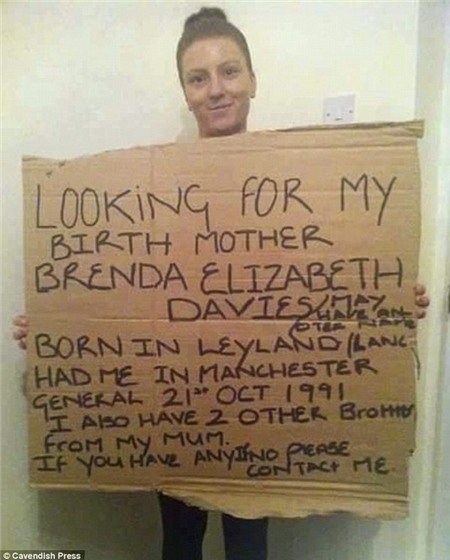 LOOKING FOR MY
BIRTH MOTHER
BRENDA ELIZABETH
DAVIES/MAY
HAVE AN
OTER NAME
BORN IN LEYLAND/LANC
HAD ME IN MANCHESTER
GENERAL 21st OCT 1991
I AlSO HAVE 2 OTHER BroTHers
From MY MUM.
IF YOU HAVE ANY INFO PlEASE
CONTACT ME.
© Cavendish Press